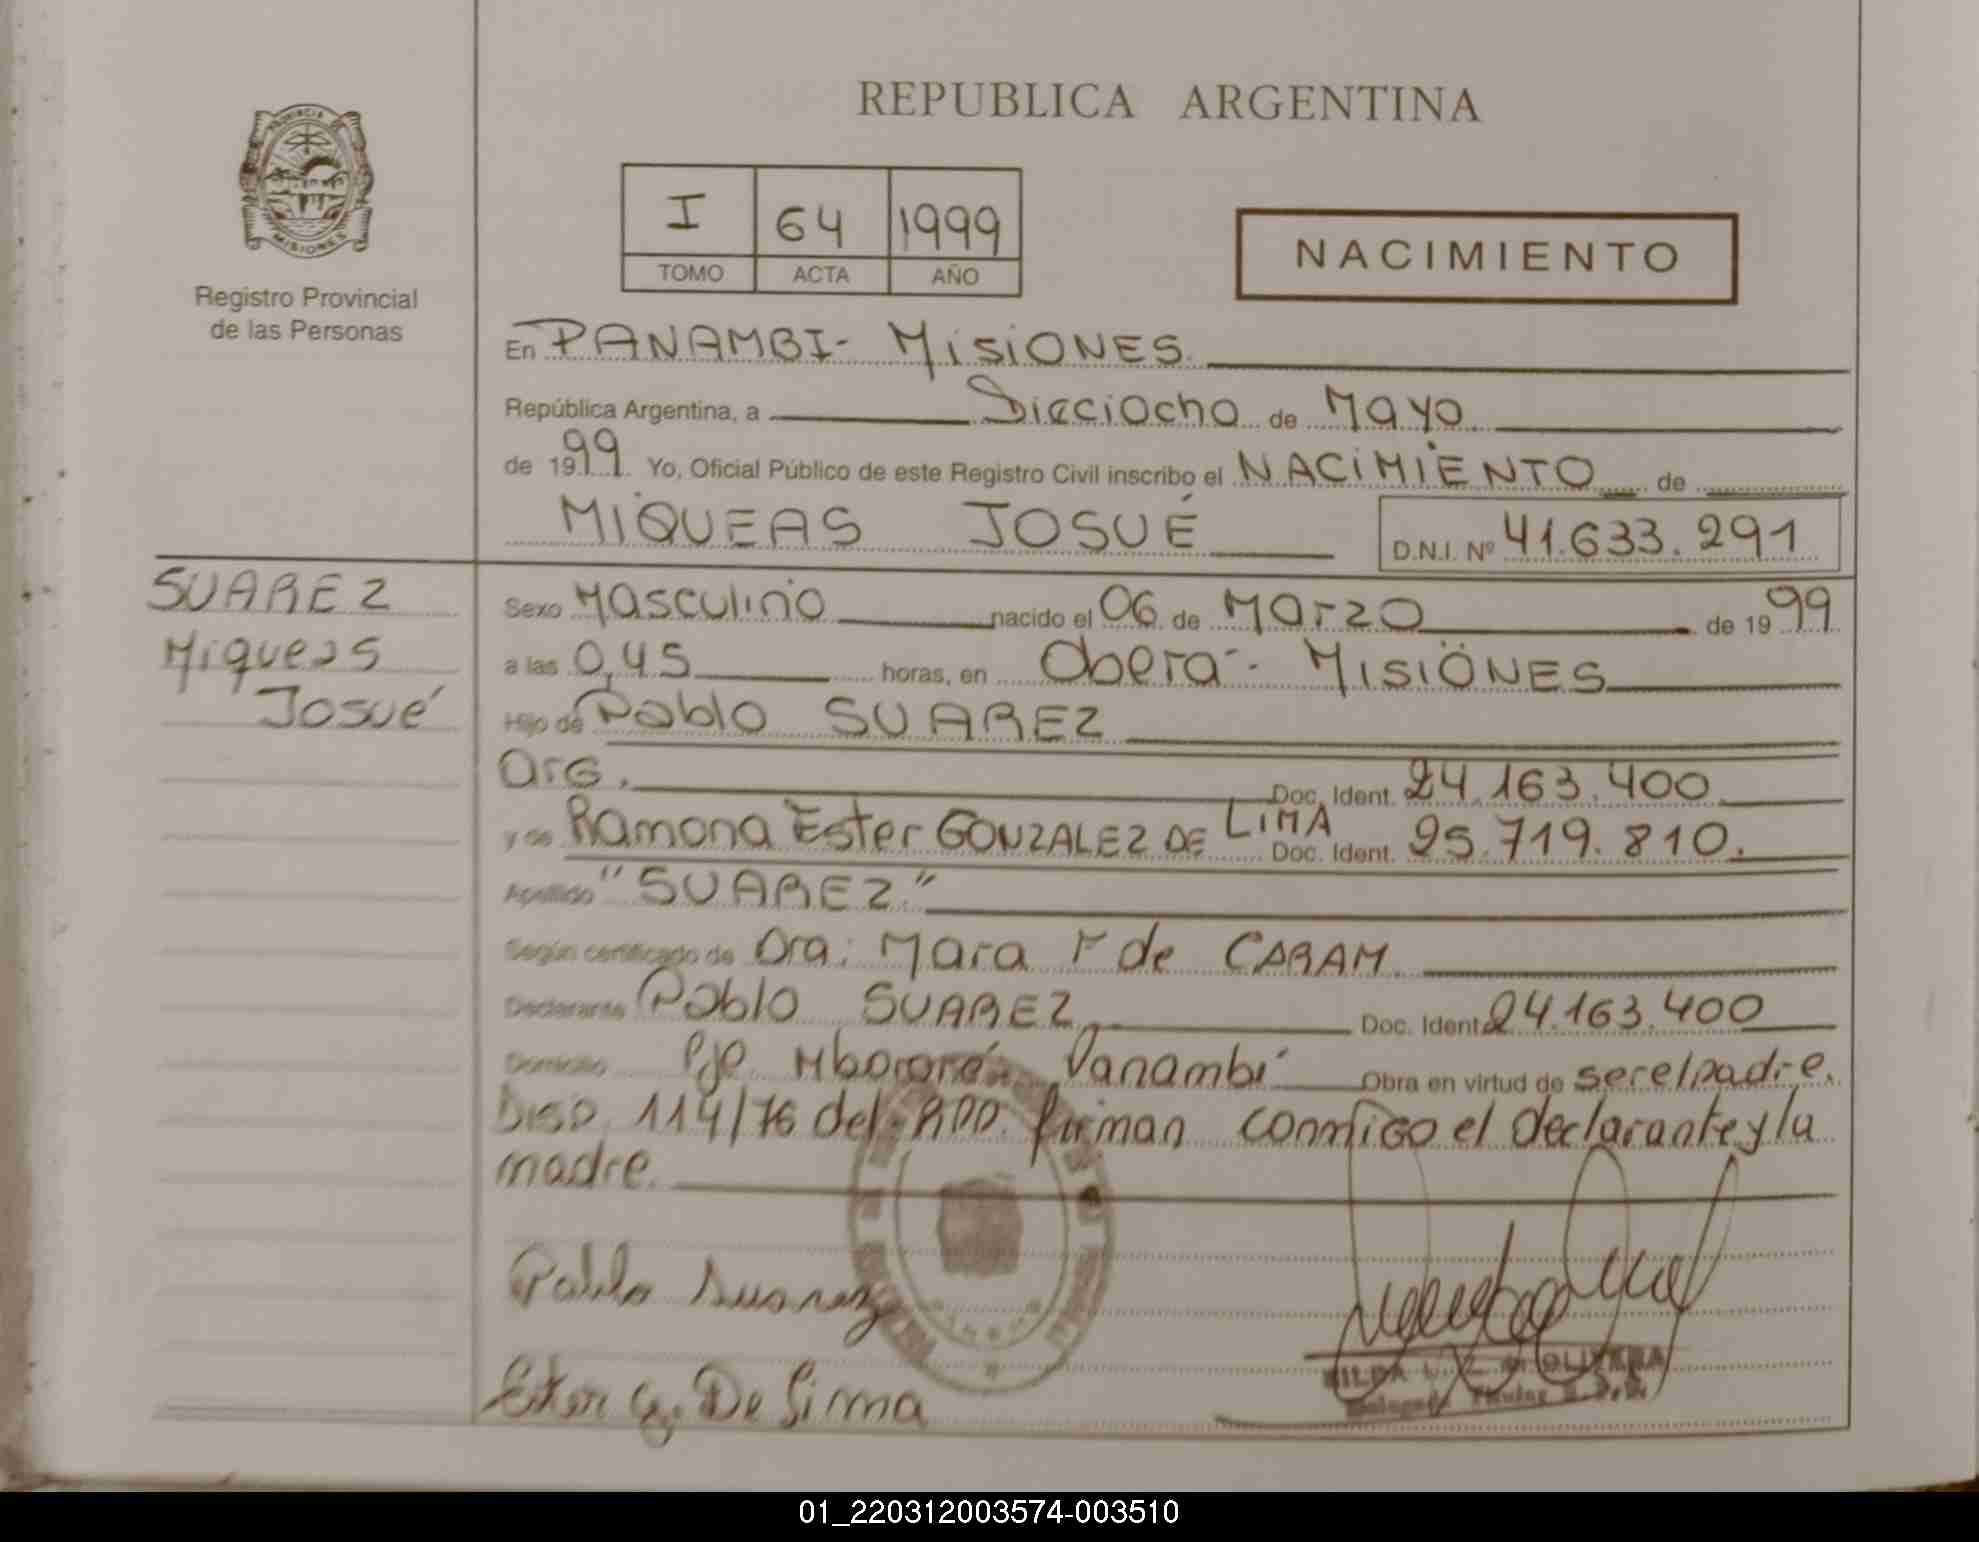 REPUBLICA ARGENTINA
PROVINCIA DE
MISIONES
Registro Provincial
de las Personas
I 64 1999
TOMO ACTA AÑO
NACIMIENTO
En PANAMBI- MisiONES
República Argentina, a Dieciocho de Mayo
de 1999 Yo, Oficial Público de este Registro Civil inscribo el NACIMIENTO de
MIQUEAS JOSUÉ D.N.I. Nº 41.633.291
SUAREZ
Miqueas
Josué
Sexo Masculino nacido el 06 de Marzo de 1999
a las 0,45 horas, en Obera- MISIONES
Hijo de Pablo SUAREZ
Arg. Doc. Ident. 24.163.400
y de Ramona Ester GONZALEZ DE LIMA Doc. Ident. 25.719.810.
Apellido "SUAREZ"
Según certificado de Dra: Mara F de CARAM
Declarante Pablo SUAREZ Doc. Ident. 24.163.400
Domicilio Pje Mbororé Panambí Obra en virtud de ser el padre.
Disp. 114/76 del RPP. firman conmigo el declarante y la
madre.
Pablo Suarez
Ester G. De Lima
DE OLIVERA
Titular
01_220312003574-003510